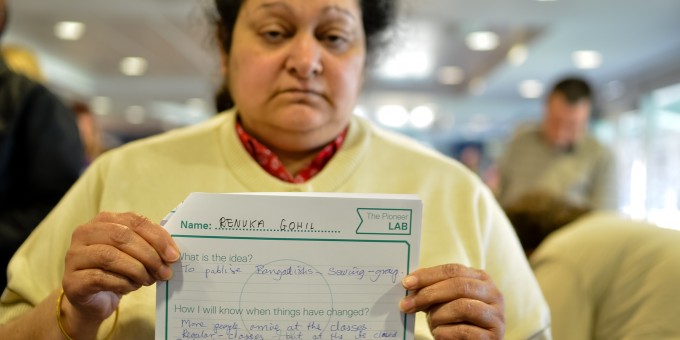 The Pioneer
LAB
Name: RENUKA GOHIL
What is the idea?
To publise Bangladishi - Sewing - group.
How I will know when things have changed?
More people arrive at the classes
Regular - classes - at the